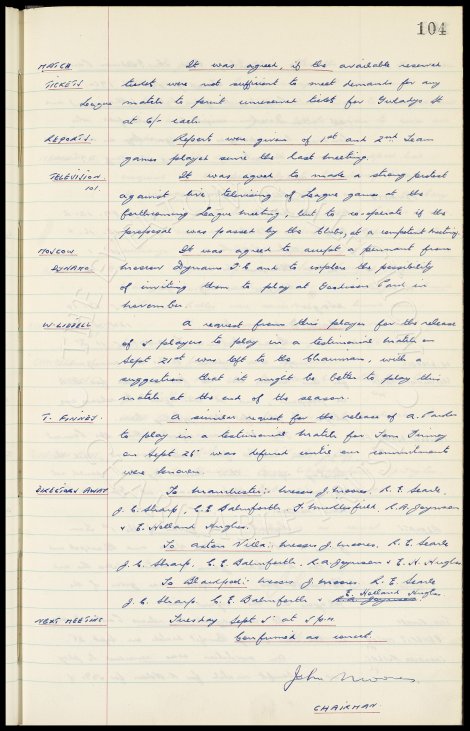 104
MATCH It was agreed, if the available reserved
TICKETS tickets were not sufficient to meet demands for any
League match to print unreserved tickets for Gwladys St
at 6/- each.
REPORTS. Reports were given of 1st and 2nd Team
games played since the last meeting.
TELEVISION It was agreed to make a strong protest
101. against live televising of League games at the
forthcoming League meeting, but to co-operate if the
proposal was passed by the Clubs, at a competent meeting.
MOSCOW It was agreed to accept a pennant from
DYNAMO Moscow Dynamo F.C and to explore the possibility
of inviting them to play at Goodison Park in
November.
W. LIDDELL A request from this player for the release
of 2 players to play in a testimonial match on
Sept 21st was left to the Chairman, with a
suggestion that it might be better to play this
match at the end of the season.
T. FINNEY. A similar request for the release of A. Parker
to play in a testimonial match for Tom Finney
on Sept 26 was deferred until our commitments
were known.
DIRECTORS AWAY To Manchester: Messrs J. Moores, R. E. Searle,
J. C. Sharp, C. E. Balmforth, F. Micklesfield, R. A. Joynson
& E. Holland Hughes.
To Aston Villa: Messrs J. Moores, R. E. Searle
J. C. Sharp, C. E. Balmforth, R. A. Joynson & E. H. Hughes
To Blackpool: Messrs J. Moores, R. E. Searle
J. C. Sharp, C. E. Balmforth & E. Holland Hughes R. A. Joynson
NEXT MEETING Tuesday Sept 5 at 5 p.m.
Confirmed as correct.
John Moores
CHAIRMAN.